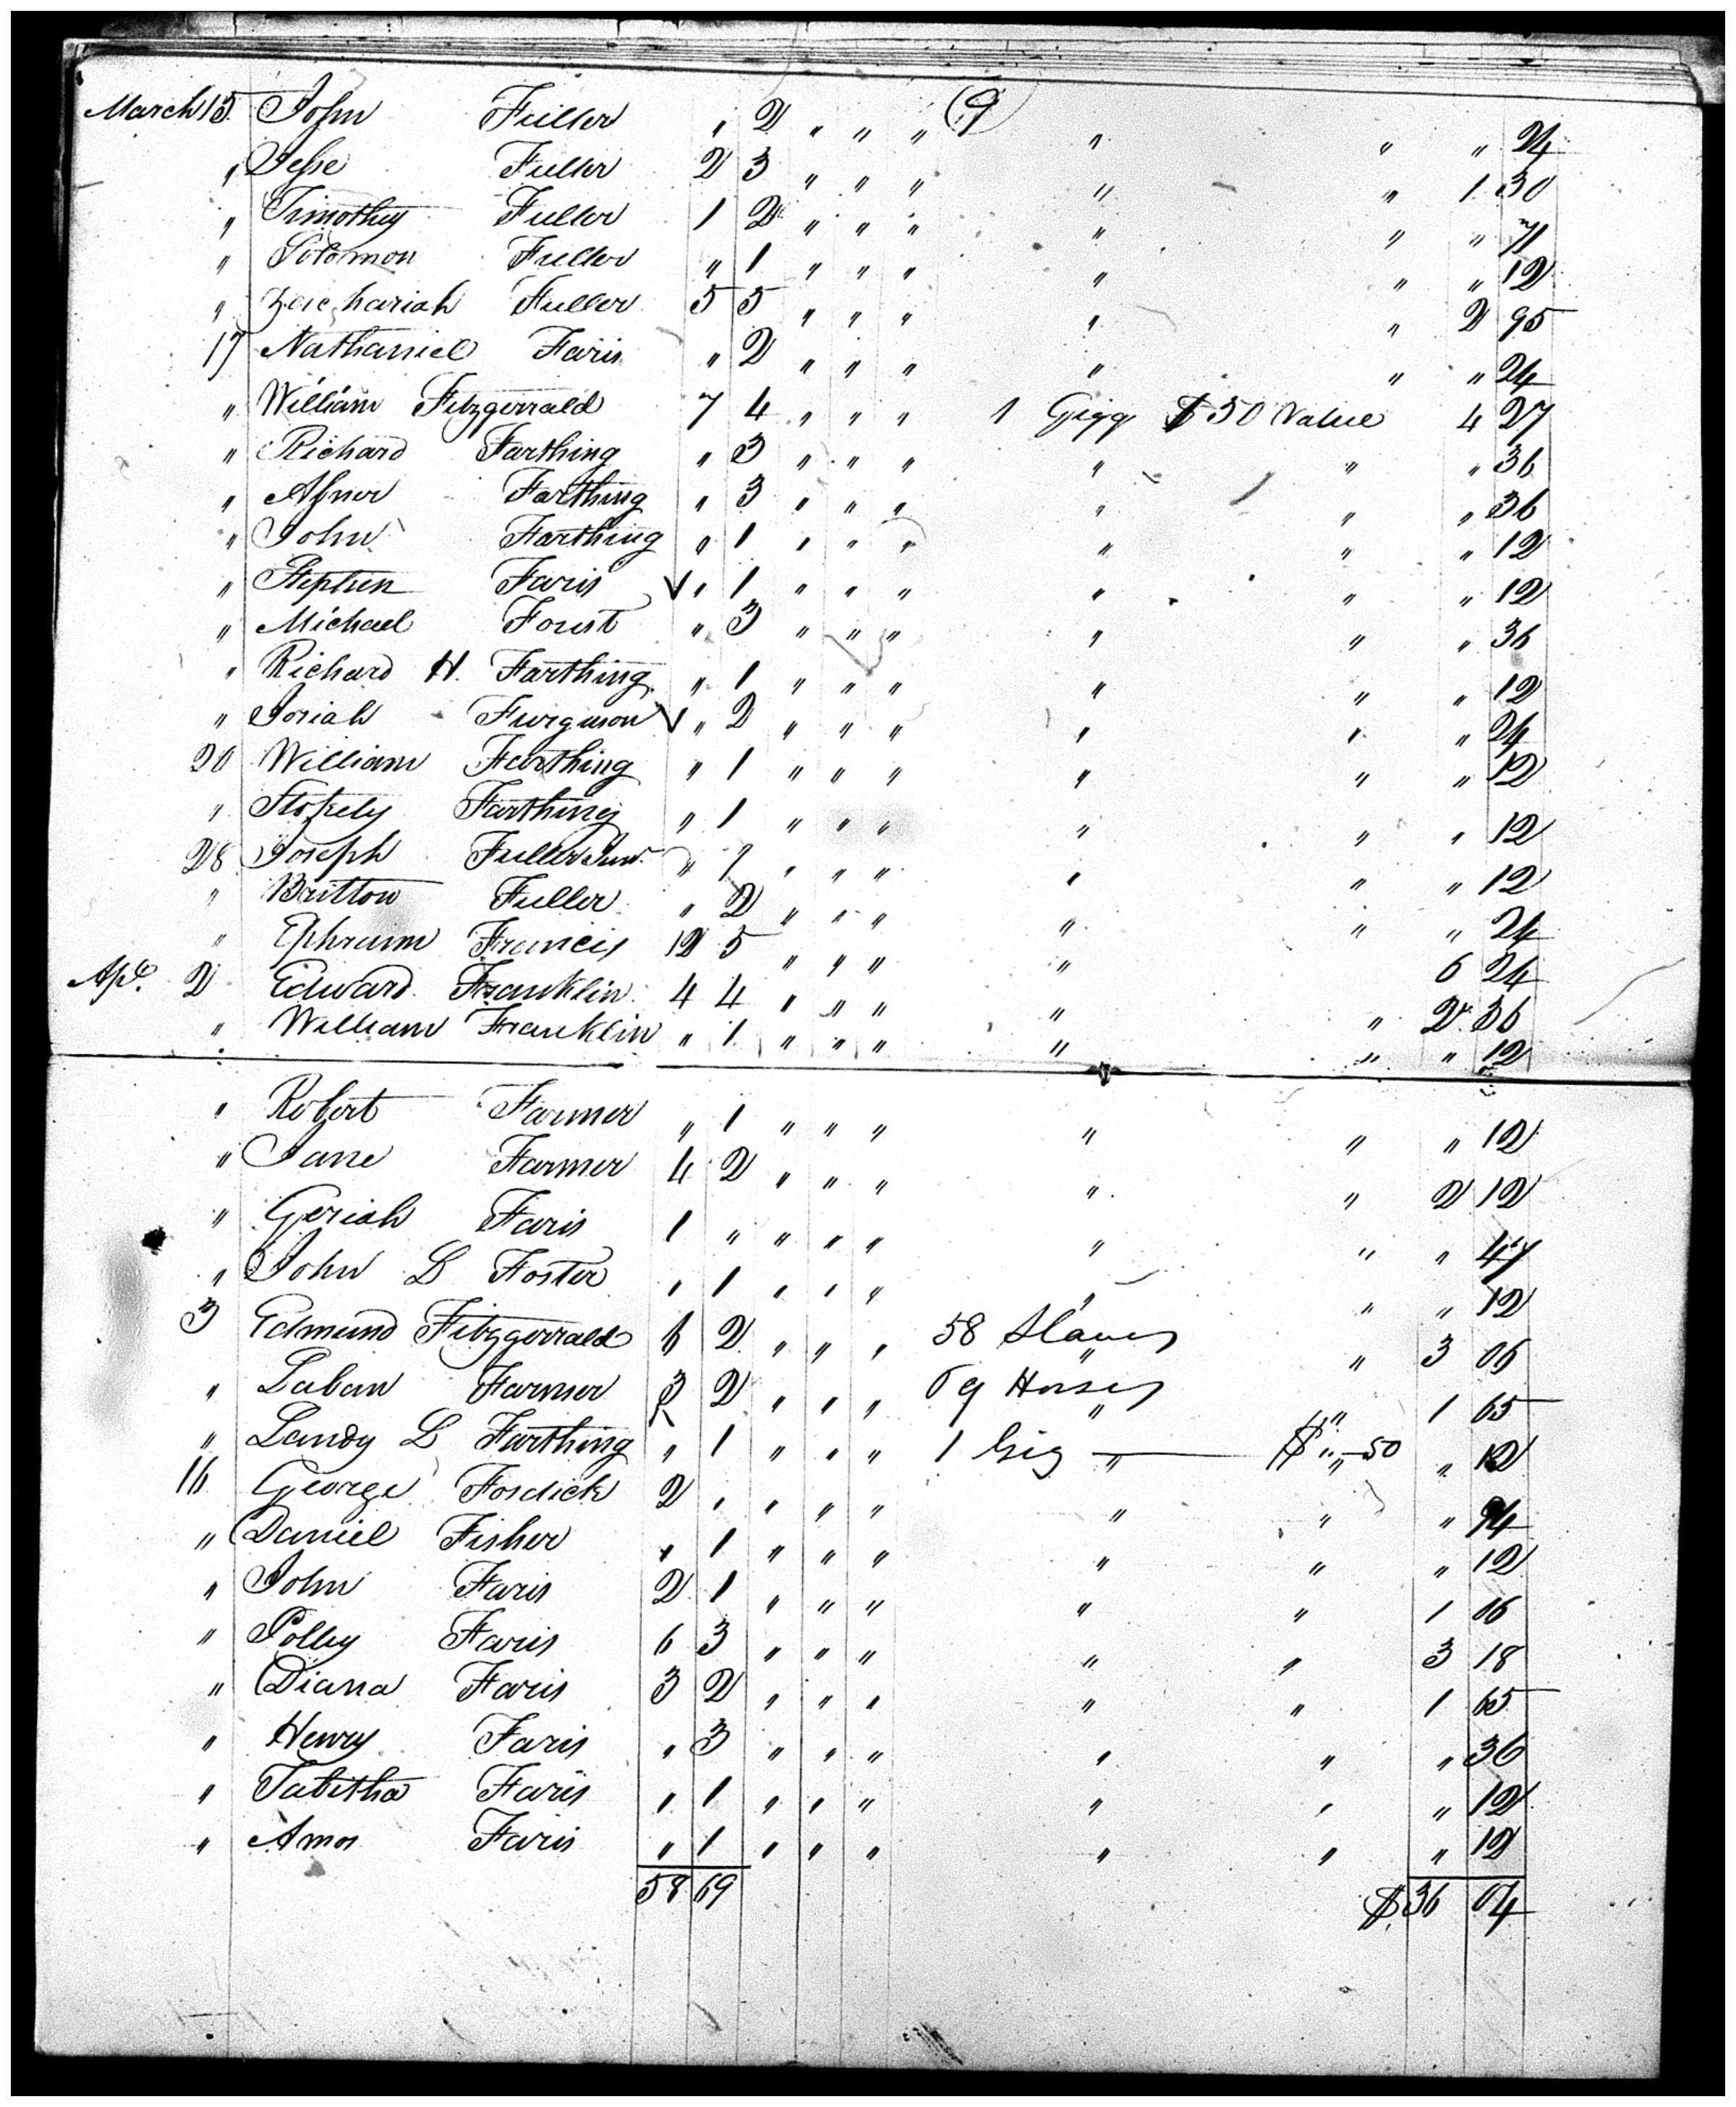 (9)
March 15 John Fuller " 2 " " " " " " 24
" Jesse Fuller 2 3 " " " " " 1 30
" Timothy Fuller 1 2 " " " " " " 71
" Solomon Fuller " 1 " " " " " " 12
" Zechariah Fuller 5 5 " " " " " 2 95
17 Nathaniel Faris " 2 " " " " " " 24
" William Fitzgerrald 7 4 " " " 1 Gigg $50 Value 4 27
" Richard Farthing " 3 " " " " " " 36
" Abner Farthing " 3 " " " " " " 36
" John Farthing " 1 " " " " " " 12
" Stephen Faris " 1 " " " " " " 12
" Michael Forist " 3 " " " " " " 36
" Richard H. Farthing " 1 " " " " " " 12
" Josiah Furguson " 2 " " " " " " 24
20 William Farthing " 1 " " " " " " 12
" Farthing " 1 " " " " " " 12
28 Joseph Fuller Junr. " 1 " " " " " " 12
" Britton Fuller " 2 " " " " " " 24
" Ephraim Francis 12 5 " " " " 6 24
Apl. 2 Edward Franklin 4 4 " " " " " 2 36
" William Franklin " 1 " " " " " " 12
" Robert Farmer " 1 " " " " " " 12
" Jane Farmer 4 2 " " " " " 2 12
" Geriah Faris 1 " " " " " " " 47
" John L Foster " 1 " " " " " " 12
3 Edmund Fitzggerrald 6 2 " " " 58 Slaves " " 3 06
" Laban Farmer 3 2 " " " 69 Horses " " 1 65
" Landy L Farthing " 1 " " " 1 Gig " $ " 50 " 12
16 George Fosdick 2 " " " " " " " 94
" Daniel Fisher " 1 " " " " " " 12
" John Faris 2 1 " " " " " 1 06
" Polley Faris 6 3 " " " " " 3 18
" Diana Faris 3 2 " " " " " 1 65
" Henry Faris " 3 " " " " " " 36
" Tabitha Faris " 1 " " " " " " 12
" Amos Faris " 1 " " " " " " 12
58 69 $36 04